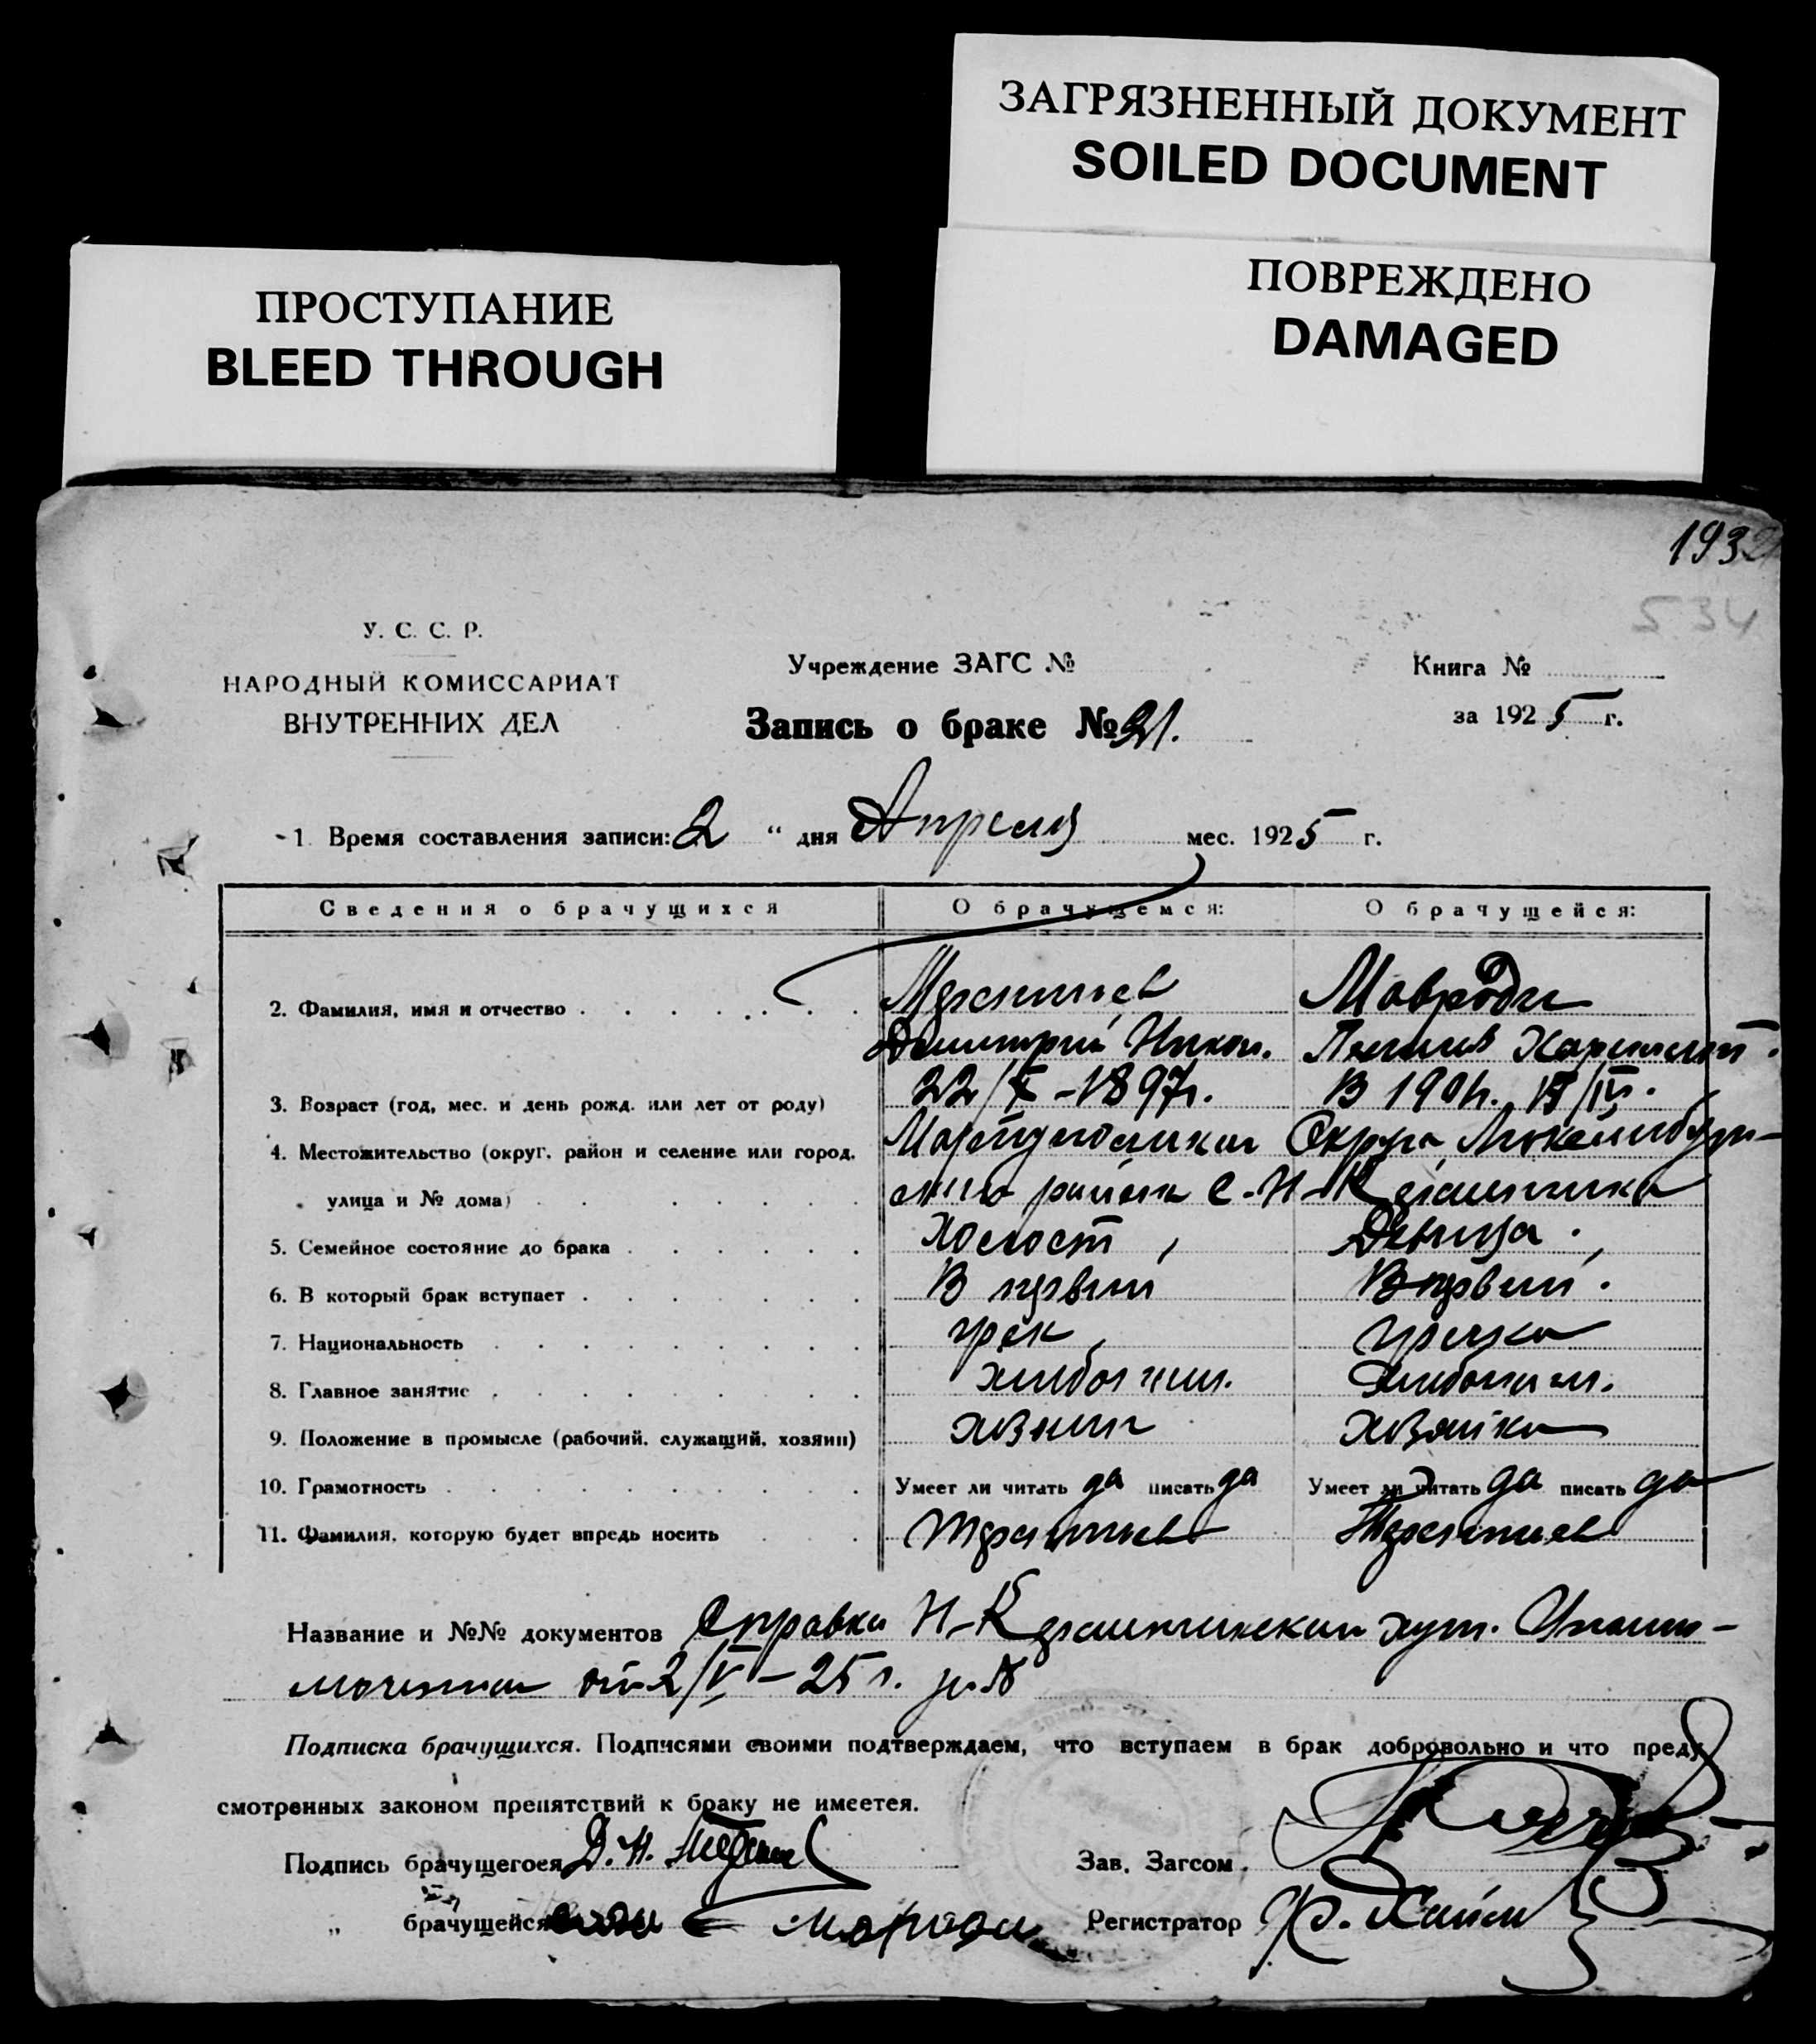 ЗАГРЯЗНЕННЫЙ ДОКУМЕНТ
SOILED DOCUMENT
ПОВРЕЖДЕНО
DAMAGED
ПРОСТУПАНИЕ
BLEED THROUGH
193
534
У. С. С. Р.
НАРОДНЫЙ КОМИССАРИАТ
ВНУТРЕННИХ ДЕЛ
Учреждение ЗАГС №
Запись о браке № 21.
Книга №
за 1925 г.
1. Время составления записи: 2 “ дня Апреля мес. 1925 г.
Сведения о брачущихся О брачущемся: О брачущейся:
2. Фамилия, имя и отчество Терентиев Мавроди
Димитрий Никол. Харлам
3. Возраст (год, мес. и день рожд. или лет от роду) 22/X-1897г. В 1904г.
4. Местожительство (округ, район и селение или город, Мариупольский Округа
улица и № дома) района с. Н-К
5. Семейное состояние до брака Холост Девица.
6. В который брак вступает В первый В первый.
7. Национальность грек гречка
8. Главное занятие хлебопаш. хлебопаш.
9. Положение в промысле (рабочий, служащий, хозяин) хозяин хозяйка
10. Грамотность Умеет ли читать да писать да Умеет ли читать да писать да
11. Фамилия, которую будет впредь носить Терентиев Терентиев
Название и №№ документов Справка Н-К хут. Уполно-
моченн от 2/V-25 г.
Подписка брачущихся. Подписями своими подтверждаем, что вступаем в брак добровольно и что преду
смотренных законом препятствий к браку не имеется.
Подпись брачущегося Д. Н. Зав. Загсом
„ брачущейся Мавроди Регистратор